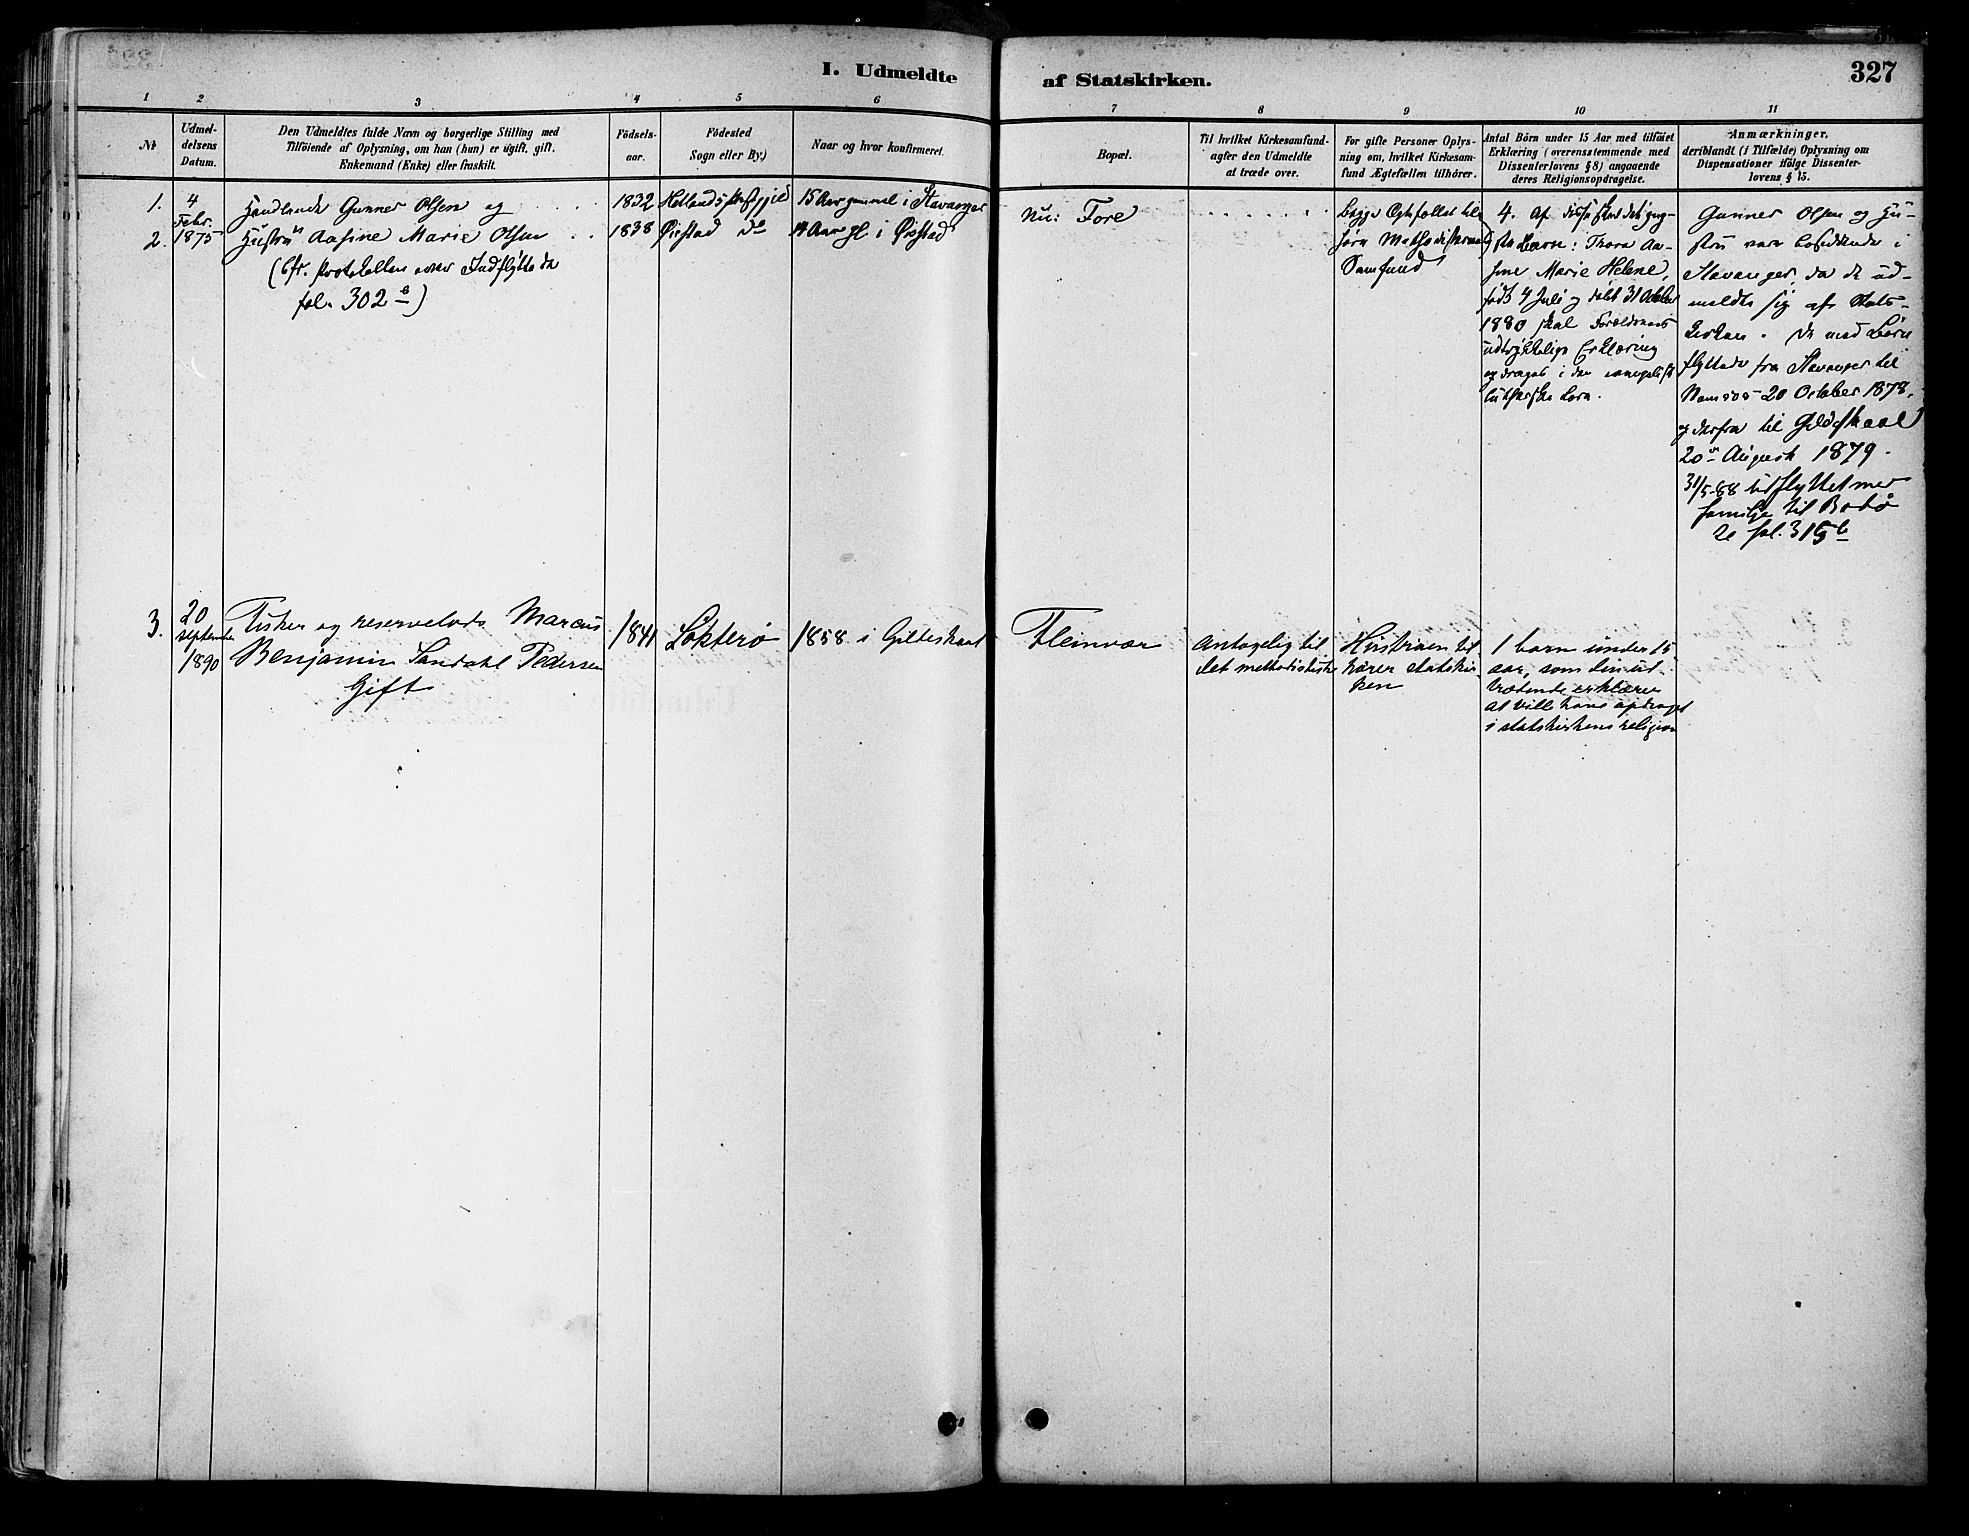 I. Udmeldte
af Statskirken.
327
1
2
3
4
5
6
7
8
9
10
11
№
Udmel-
delsens
Datum.
Den Udmeldtes fulde Navn og borgerlige Stilling med
Tilföiende af Oplysning, om han (hun) er ugift, gift,
Enkemand (Enke) eller fraskilt.
Födsels-
aar.
Födested
Sogn eller By.)
Naar og hvor konfirmeret.
Bopæl.
Til hvilket Kirkesamfund-
agter den Udmeldte
at træde over.
For gifte Personer Oplys-
ning om, hvilket Kirkesam-
fund Ægtefællen tilhörer.
Antal Börn under 15 Aar, med tilföiet
Erklæring (overensstemmende med
Dissenterlovens § 8) angaaende
deres Religionsopdragelse.
Anmærkninger,
deriblandt (i Tilfælde) Oplysning om
Dispensationer ifölge Dissenter-
lovens § 15.
1.
4
Febr.
2.
1875
Handlende Gunner Olsen og
Hustru Aasine Marie Olsen
(Cfr. Protokollen over Indflyttede
fol. 302 b)
1832
1838
Hetlands Prstgjeld
Øristad Do
15 Aar gammel i Stavanger
14 Aar gl. i Øristad
Nu: Fore
Begge Ægtefoller til-
høre Methodisternes
Samfund
4. Af disse skal det yng-
ste Barn: Thora Aa-
sine Marie Helene,
født 4 Juli og døbt 31 October
1880 skal Forældrenes
udtrykkelige Erklæring
opdrages i den evangelisk
lutherske Lære.
Gunner Olsen og Hu-
stru vare bosiddende i
Stavanger, da de ud-
meldte sig af Stats-
kirken. De med Børn
flyttede fra Stavanger til
Namsos 20 October 1878,
og derfra til Gildeskaal
20de August 1879.
31/5-88 udflyttet med
familje til Bodø
se fol. 315 b
3.
20
september
1890
Fisker og reservelods Marcus
Benjamin Sandahl Pedersen
Gift
1841
Løkterø
1858 i Gildeskaal
Fleinvær
Antagelig til
det methodistiske
Hustruen til
hører statskir-
ken
1 barn under 15
aar, som den ud-
trædende erklærer
at ville have opdraget
i statskirkens religion